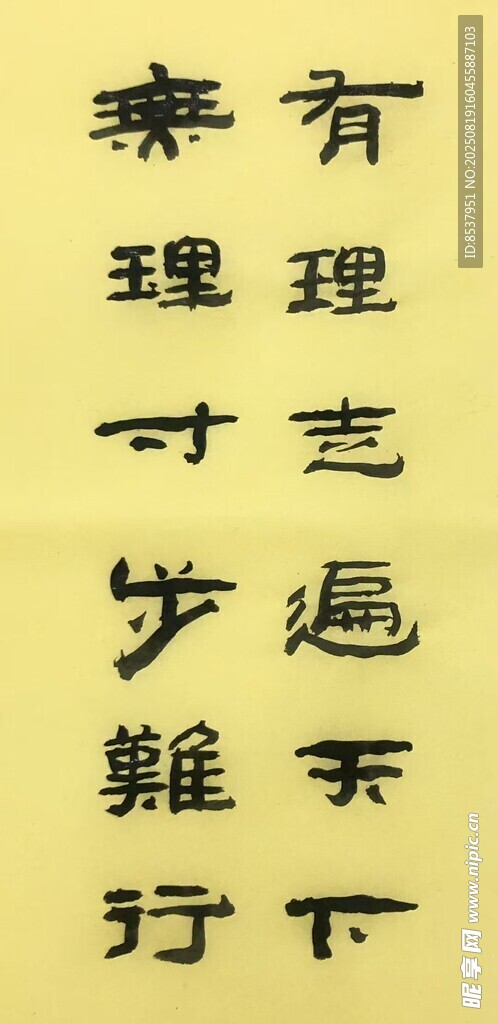 有理走遍天下
無理寸步難行
ID:8537951 NO:20250819160455887103
昵享网 www.nipic.cn